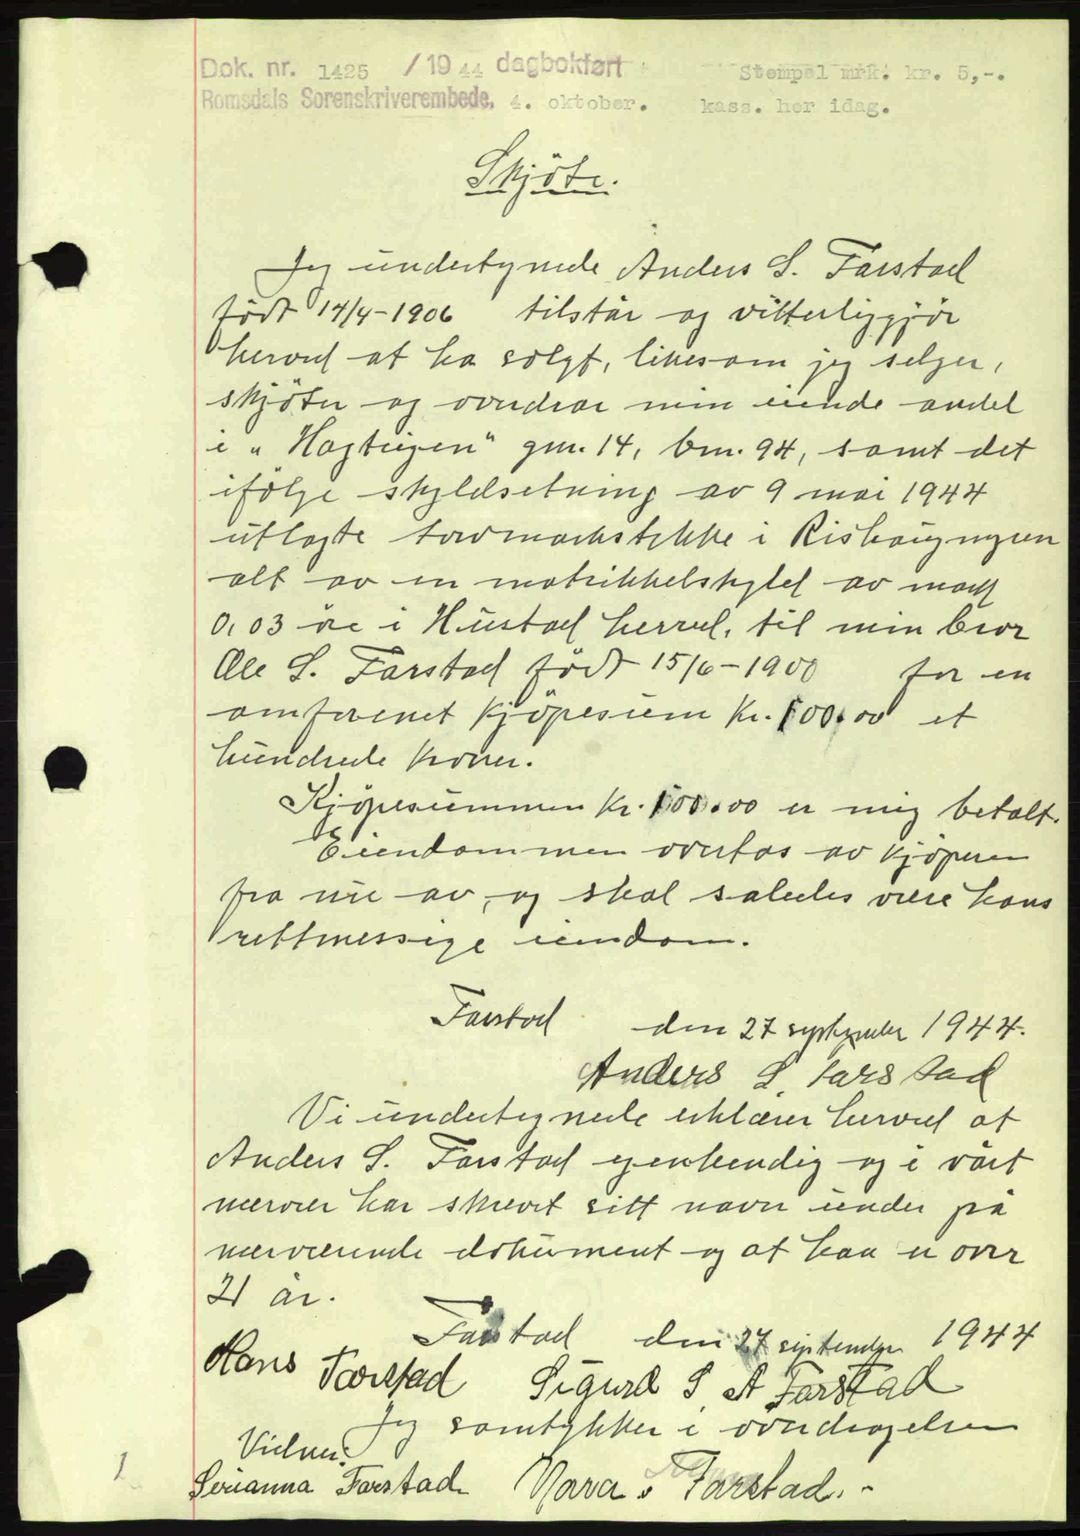 Dok. nr. 1425 / 19 44 dagbokført Stempel mrk. kr. 5,-.
Romsdals Sorenskriverembede, 4. oktober. kass. her idag.
Skjöte.
Jeg undertegnede Anders S. Farstad
født 14/4-1906 tilstår og vitterliggjör
herved at ha solgt, likesom jeg selger,
skjöter og overdrar min eiende andel
i "Hagteigen" gnr. 14, bnr. 94, samt det
ifölge skyldsetning av 9 mai 1944
utlagte torvmarkstykke i Rishaugmyren
alt av en matrikkelskyld av mark
0,03 øre i Hustad herred, til min bror
Ole S. Farstad født 15/6-1900 for en
omforenet kjöpesum kr. 100.00 et
hundrede kroner.
Kjöpesummen kr. 100.00 er mig betalt.
Eiendommen overtas av kjöperen
fra nu av, og skal således være hans
rettmessige eiendom.
Farstad den 27 september 1944.
Anders S Farstad
Vi undertegnede erklærer herved at
Anders S. Farstad egenhendig og i vårt
nærvær har skrevet sitt navn under på
nærværende dokument og at han er over
21 år.
Farstad den 27 september 1944
Hans Farstad Sigurd S A Farstad
Jeg samtykker i overdragelsen
Vidner:
Serianna Farstad Nara Farstad.